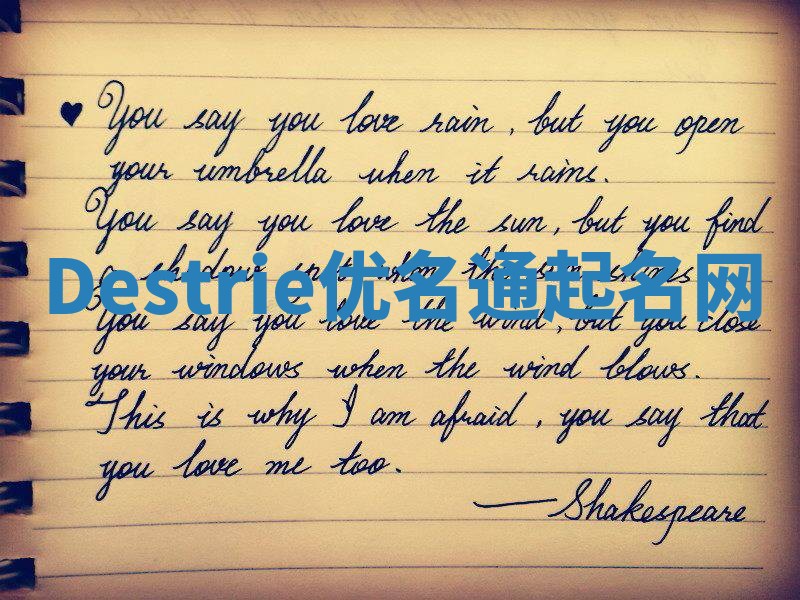 ♥ You say you love rain, but you open
your umbrella when it rains.
You say you love the sun, but you find
a shadow spot when the sun shines
Destrie优名通起名网
You say you love the wind, but you close
your windows when the wind blows.
This is why I am afraid, you say that
you love me too.
—Shakespeare